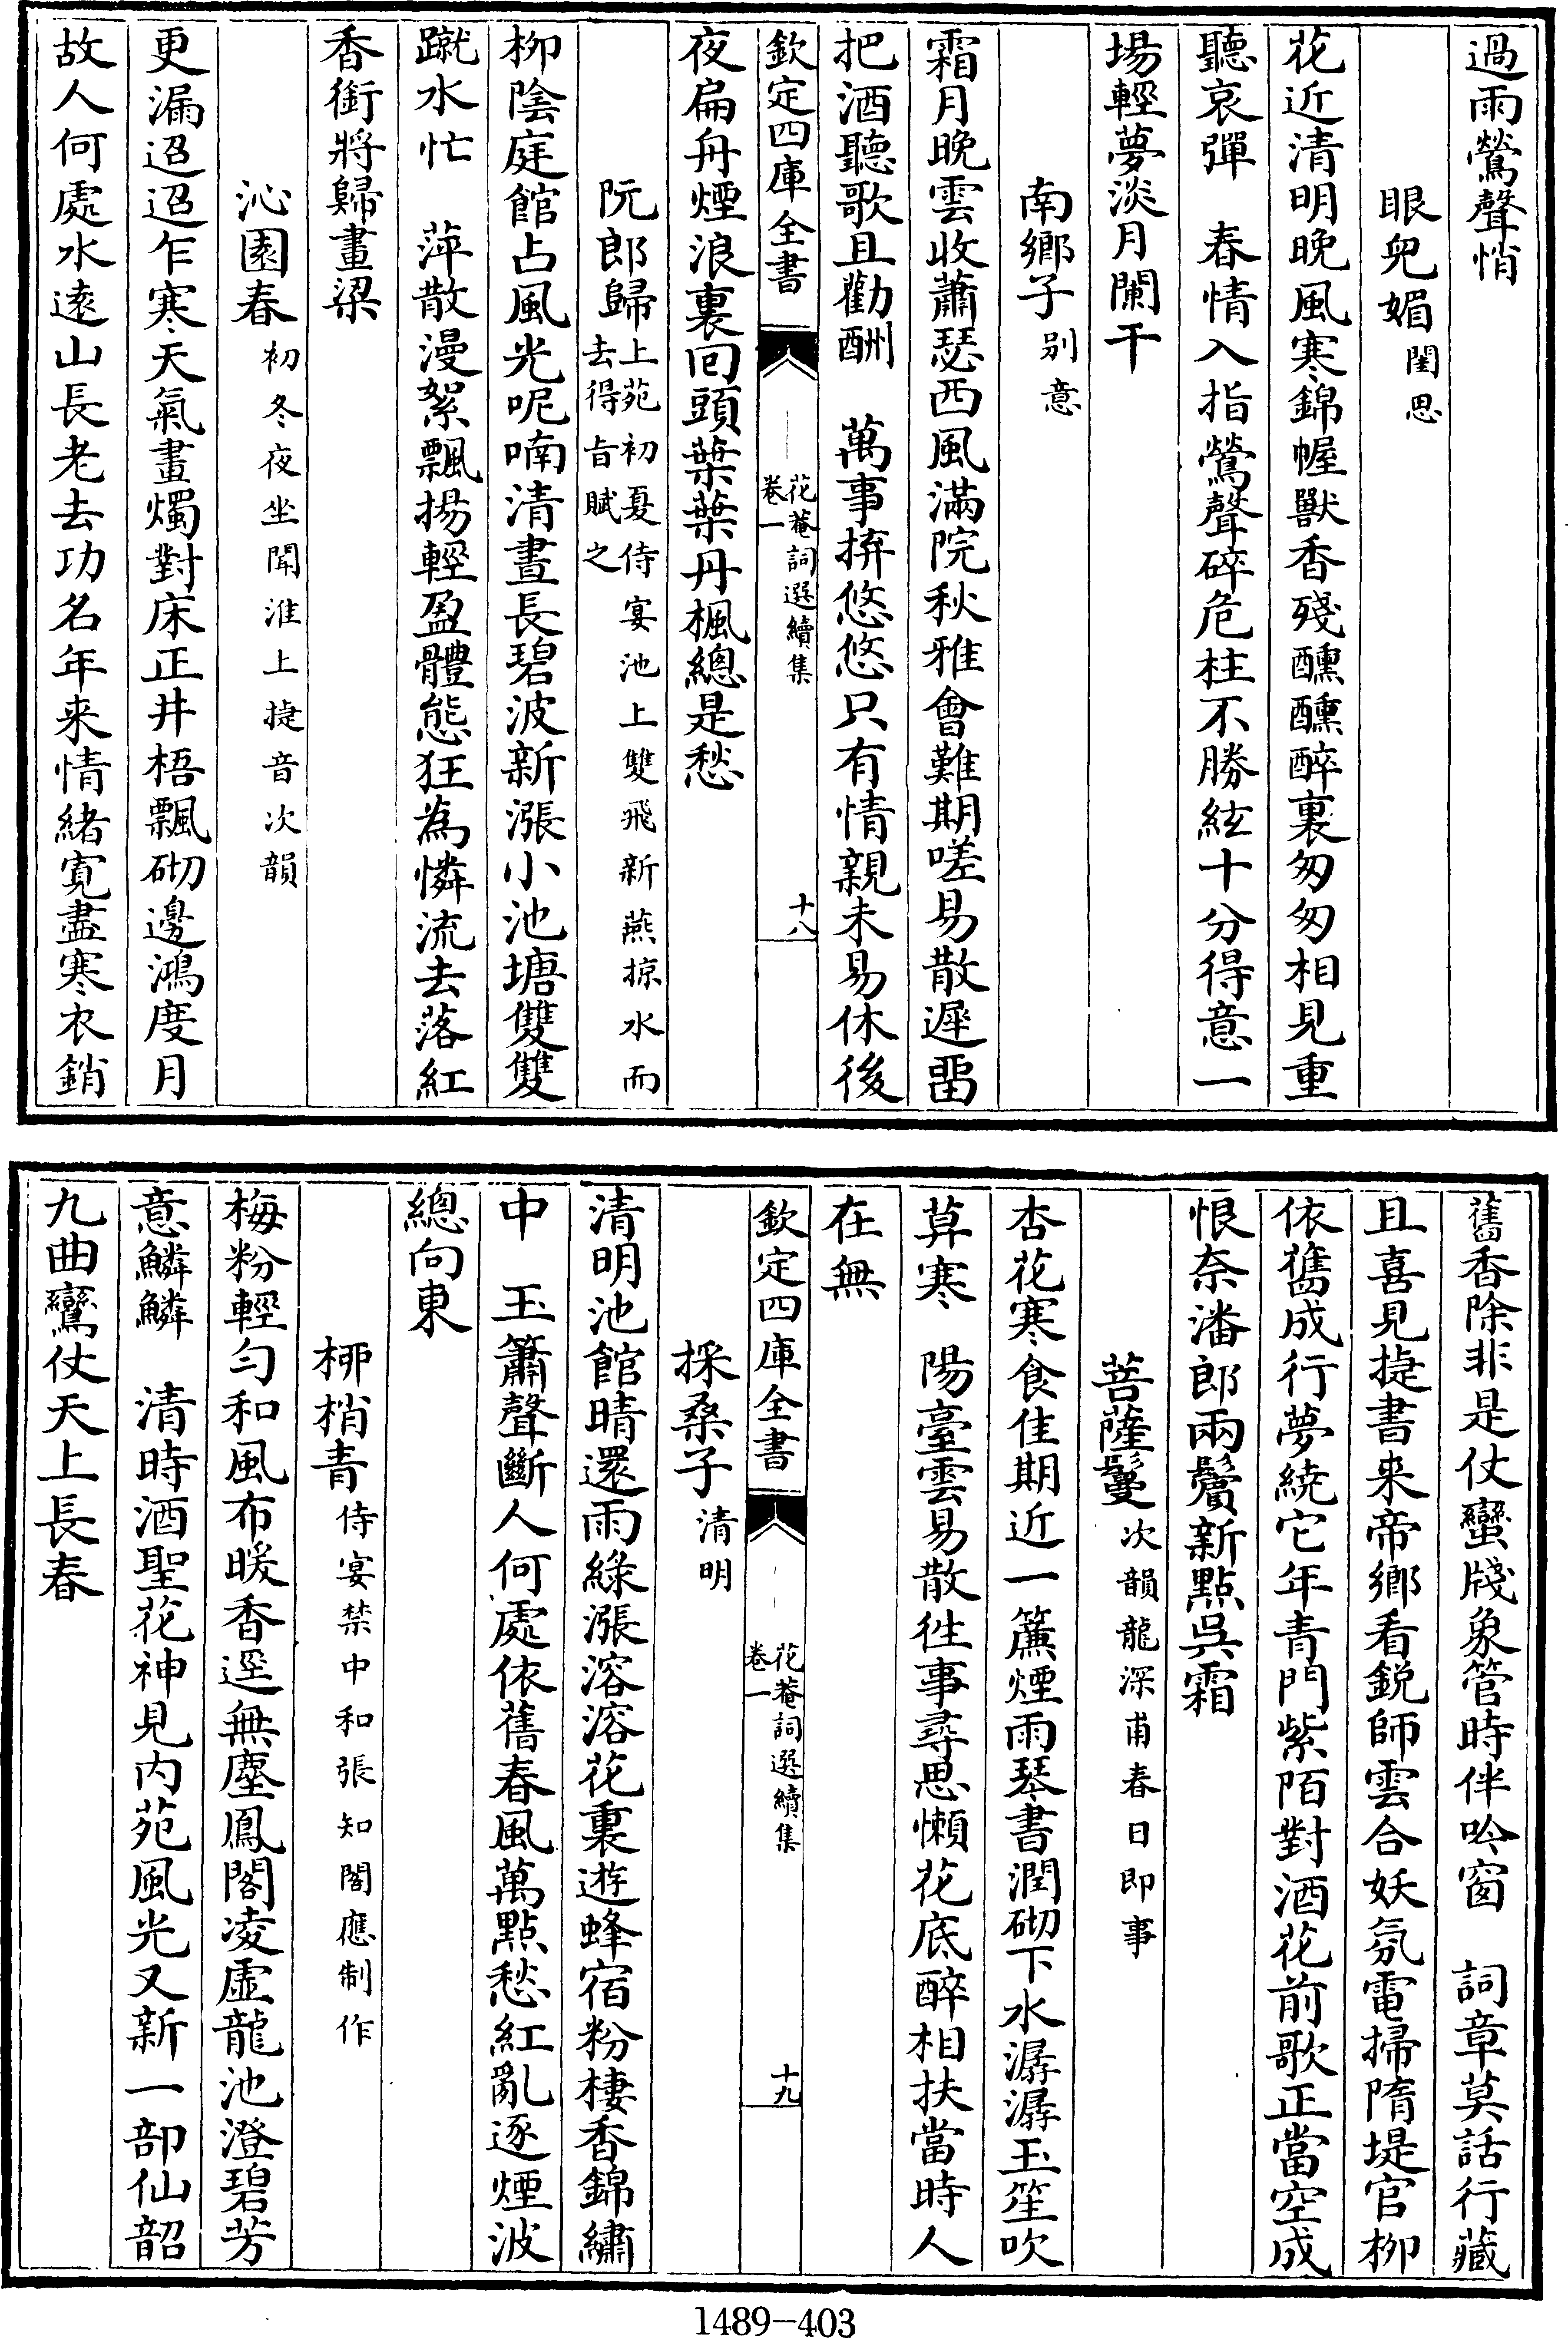 過雨鶯聲悄
眼兒媚閨思
花近清明晚風寒錦幄獸香殘醺醺醉裏匆匆相見重
聽哀彈　春情入指鶯聲碎危柱不勝絃十分得意一
場輕夢淡月闌干
南鄉子别意
霜月晚雲收蕭瑟西風滿院秋雅會難期嗟易散遲畱
把酒聽歌且勸酬　萬事拚悠悠只有情親未易休後
欽定四庫全書
花菴詞選續集
卷一
十八
夜扁舟煙浪裏回頭葉葉丹楓總是愁
阮郎歸上苑初夏侍宴池上雙飛新燕掠水而
去得旨賦之
柳陰庭館占風光呢喃清晝長碧波新漲小池塘雙雙
蹴水忙　萍散漫絮飄揚輕盈體態狂為憐流去落紅
香銜將歸畫梁
沁園春初冬夜坐聞淮上捷音次韻
更漏迢迢乍寒天氣畫燭對床正井梧飄砌邊鴻度月
故人何處水逺山長老去功名年来情緒寛盡寒衣銷
舊香除非是仗蠻牋象管時伴吟窗　詞章莫話行藏
且喜見捷書来帝鄉看鋭師雲合妖氛電掃隋堤官柳
依舊成行夢繞它年青門紫陌對酒花前歌正當空成
恨奈潘郎兩鬢新點吳霜
菩薩鬘次韻龍深甫春日即事
杏花寒食佳期近一簾煙雨琴書潤砌下水潺潺玉笙吹
草寒　陽臺雲易散徃事尋思懶花底醉相扶當時人
在無
欽定四庫全書
花菴詞選續集
卷一
十九
採桑子清明
清明池館晴還雨綠漲溶溶花裏遊蜂宿粉棲香錦繡
中　玉簫聲斷人何處依舊春風萬點愁紅亂逐煙波
總向東
柳梢青侍宴禁中和張知閤應制作
梅粉輕勻和風布暖香逕無塵鳳閣凌虛龍池澄碧芳
意鱗鱗　清時酒聖花神見内苑風光又新一部仙韶
九曲鸞仗天上長春
1489-403